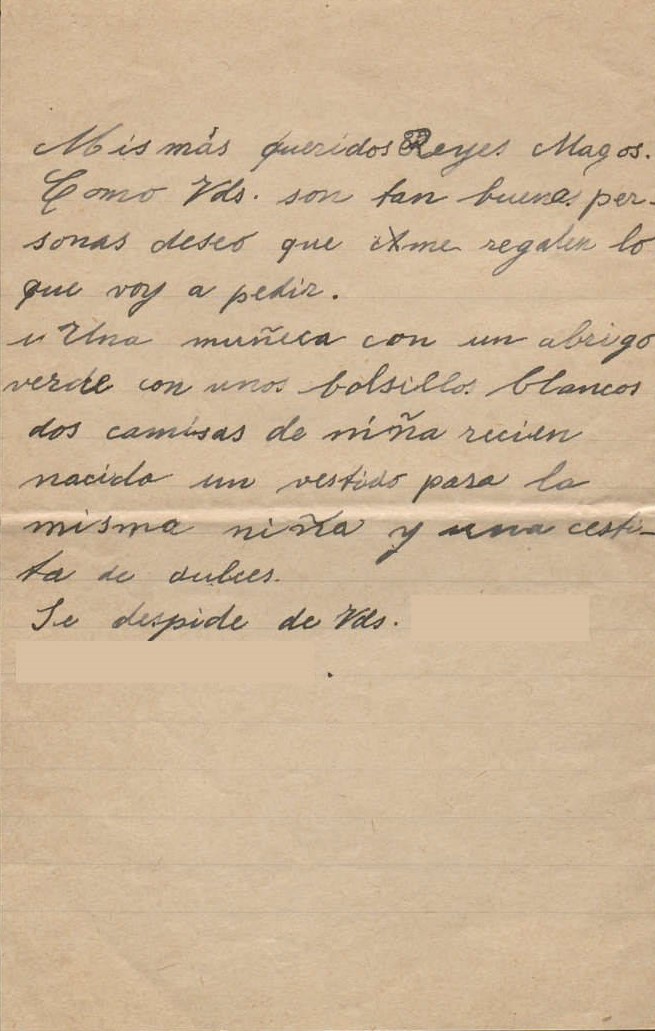 Mis más queridos Reyes Magos.
Como Vds. son tan buenas per-
sonas deseo que me regalen lo
que voy a pedir.
Una muñeca con un abrigo
verde con unos bolsillos blancos
dos camisas de niña recien
nacida un vestido para la
misma niña y una cesti-
ta de dulces.
Se despide de Vds.